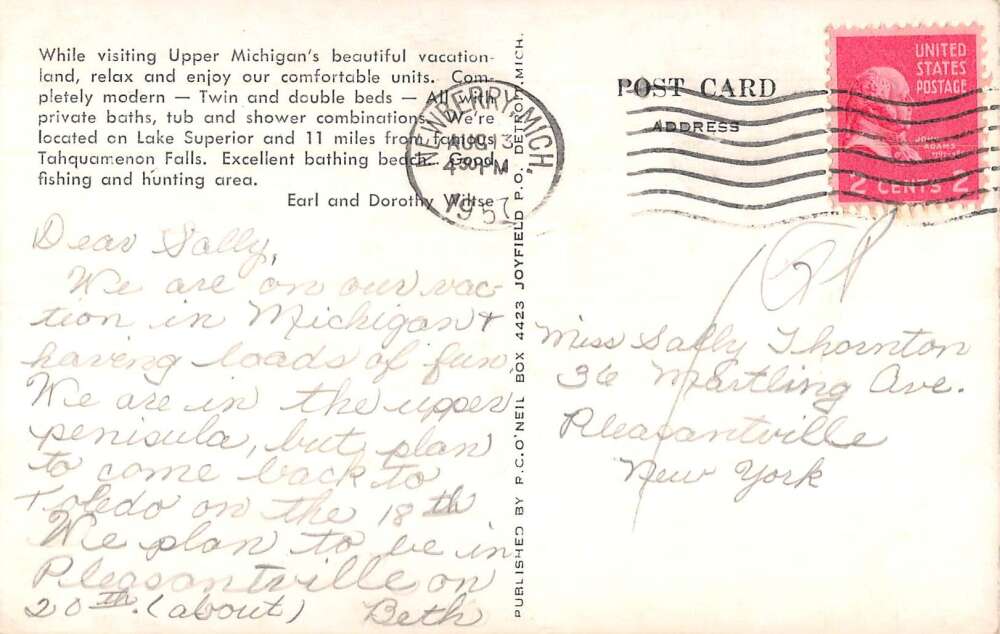 While visiting Upper Michigan's beautiful vacation-
land, relax and enjoy our comfortable units. Com-
pletely modern — Twin and double beds — All with
private baths, tub and shower combinations. We're
located on Lake Superior and 11 miles from famous
Tahquamenon Falls. Excellent bathing beach. Good
fishing and hunting area.
Earl and Dorothy Wiltse
Dear Sally,
We are on our vac-
tion in Michigan &
having loads of fun.
We are in the upper
penisula, but plan
to come back to
Toledo on the 18th
We plan to be in
Pleasantville on
20th. (about) Beth
PUBLISHED BY R.C. O'NEIL BOX 4423 JOYFIELD P.O. DETROIT, MICH.
NEWBERRY, MICH.
AUG 13
430 PM
1957
POST CARD
ADDRESS
UNITED
STATES
POSTAGE
JOHN
ADAMS
2 CENTS 2
Miss Sally Thornton
36 Martling Ave.
Pleasantville
New York